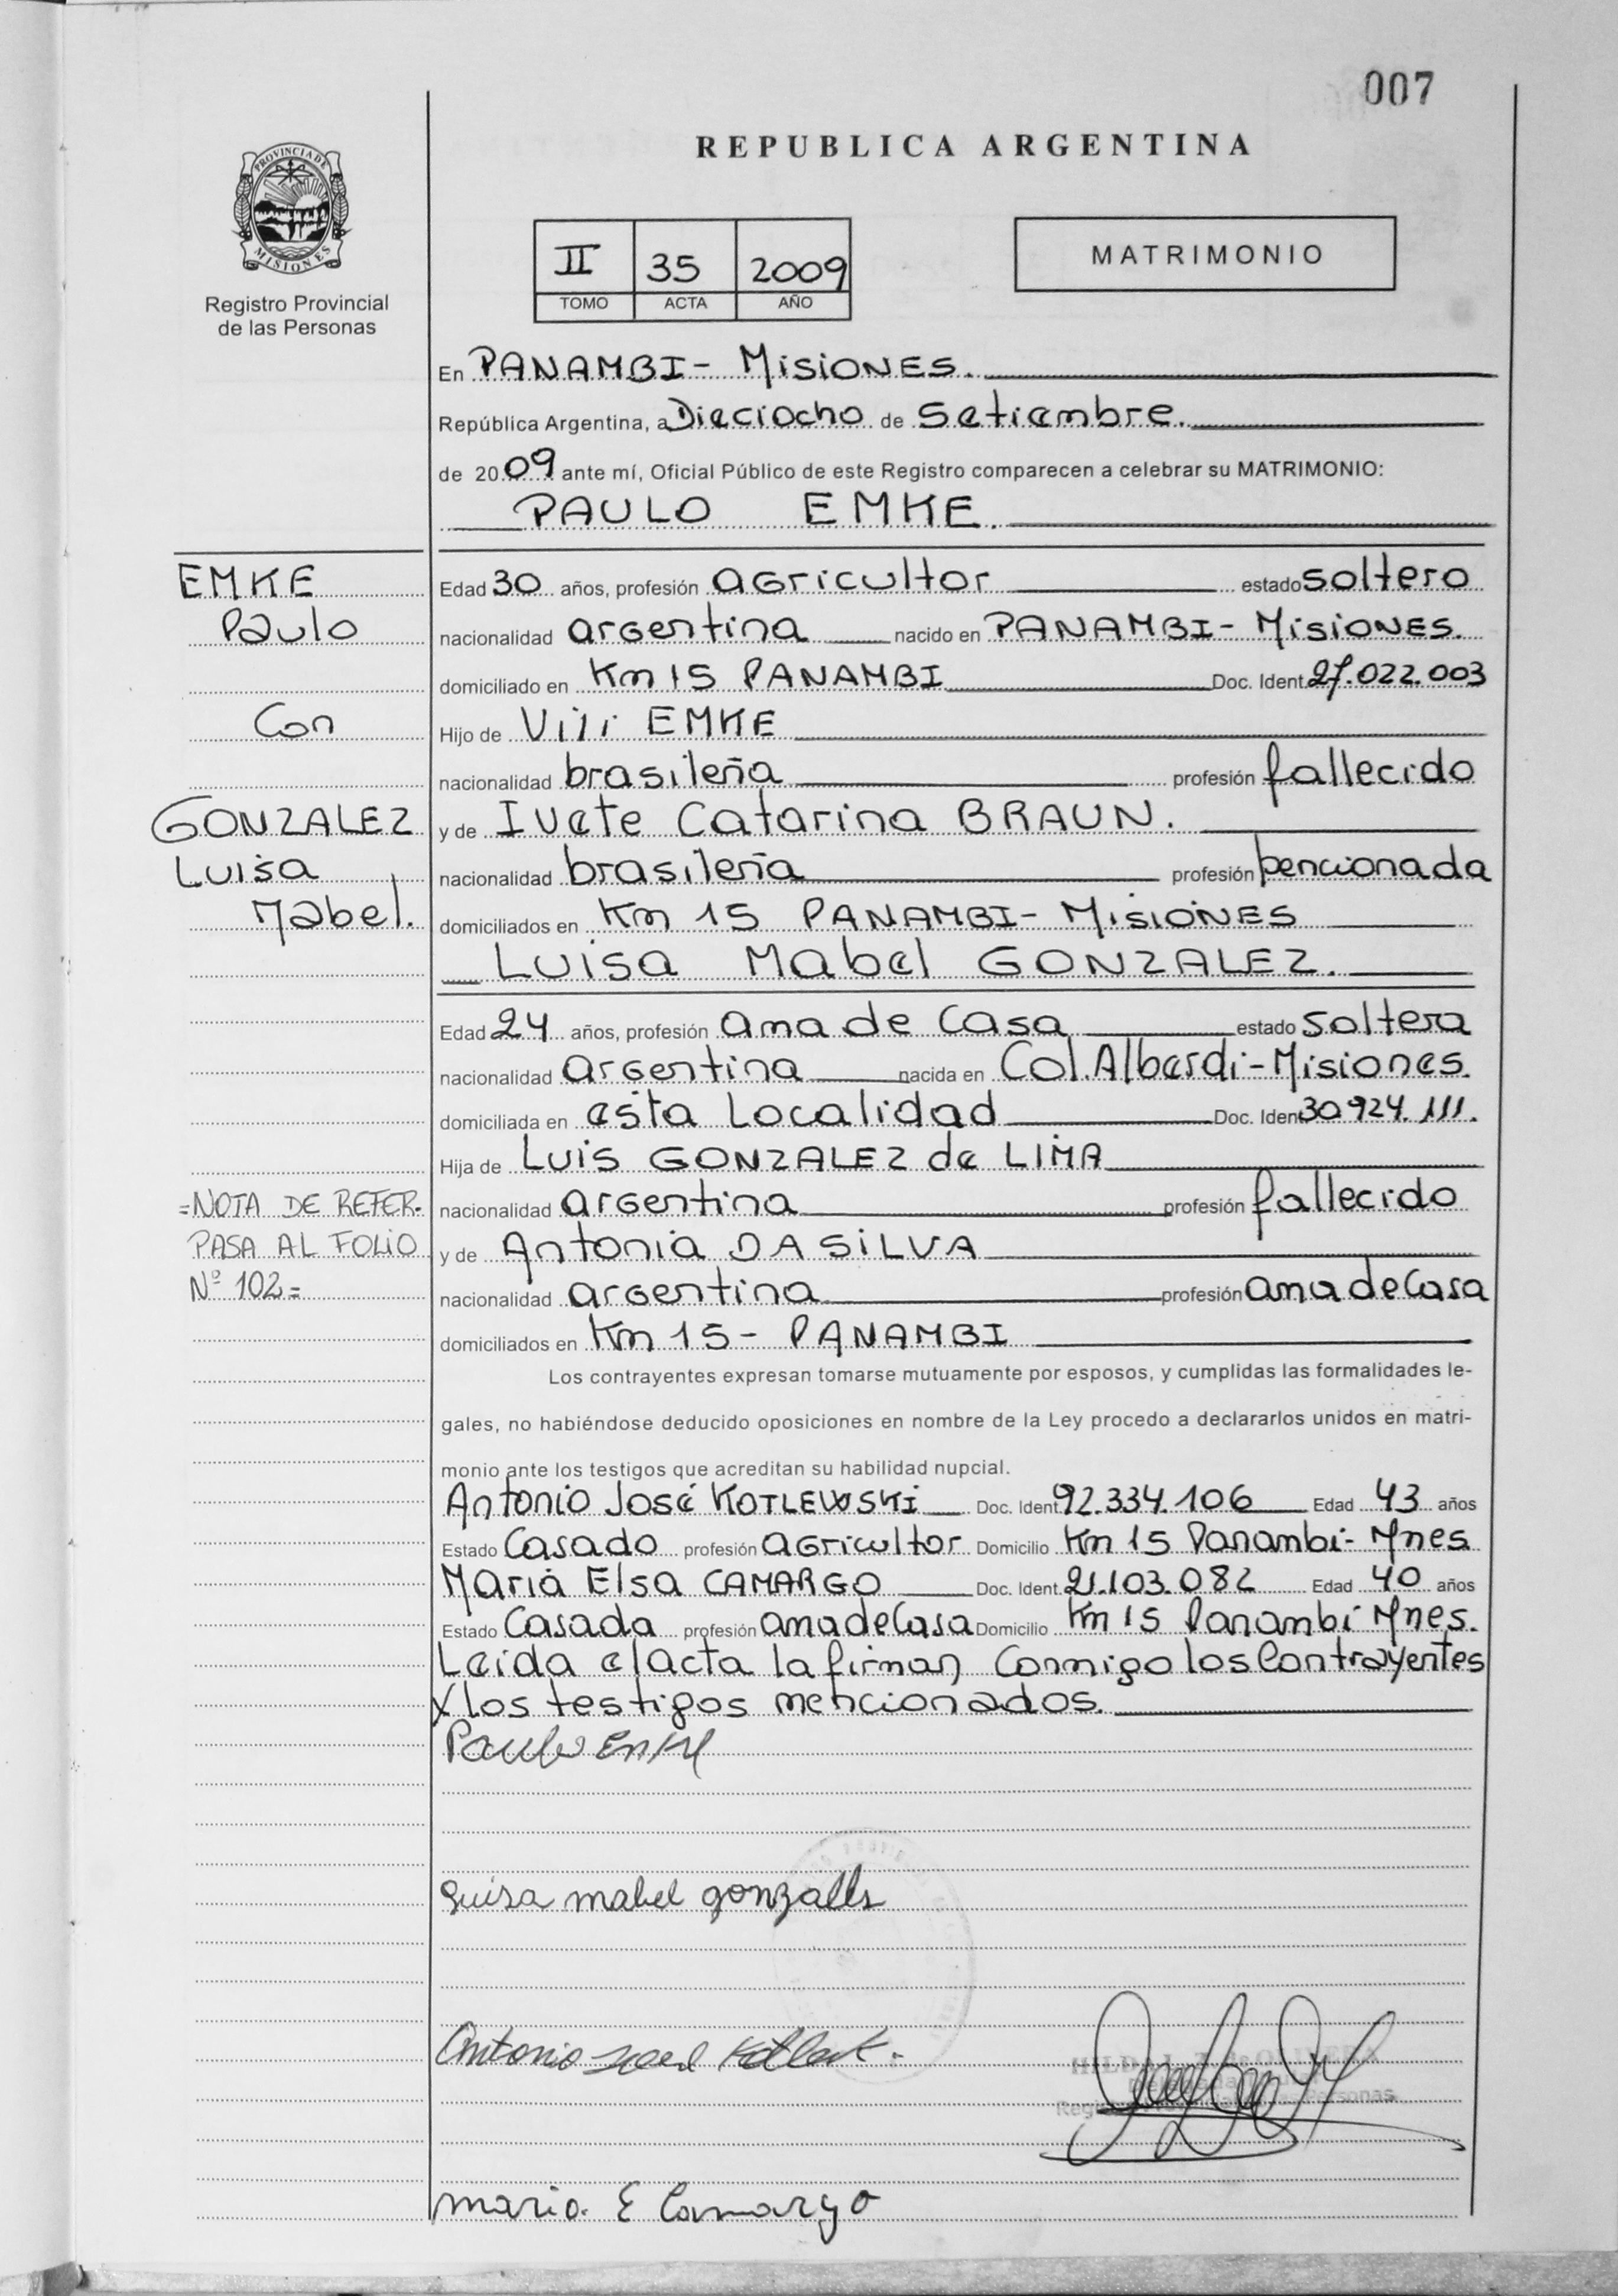 007
REPUBLICA ARGENTINA
PROVINCIA DE
MISIONES
Registro Provincial
de las Personas
II 35 2009
TOMO ACTA AÑO
MATRIMONIO
En PANAMBI- MISIONES.
República Argentina, a Dieciocho de Setiembre.
de 2009 ante mí, Oficial Público de este Registro comparecen a celebrar su MATRIMONIO:
PAULO EMKE.
EMKE
Paulo
Con
GONZALEZ
Luisa
Mabel.
=NOTA DE REFER.
PASA AL FOLIO
Nº 102=
Edad 30 años, profesión agricultor estado soltero
nacionalidad argentina nacido en PANAMBI- MISIONES.
domiciliado en Km 15 PANAMBI Doc. Ident. 27.022.003
Hijo de Vili EMKE
nacionalidad brasileña profesión fallecido
y de Ivete Catarina BRAUN.
nacionalidad brasileña profesión pencionada
domiciliados en Km 15 PANAMBI- MISIONES
Luisa Mabel GONZALEZ.
Edad 24 años, profesión ama de casa estado soltera
nacionalidad argentina nacida en Col. Alberdi-Misiones.
domiciliada en esta Localidad Doc. Ident 30.924.111.
Hija de Luis GONZALEZ de LIMA
nacionalidad argentina profesión fallecido
y de Antonia DA SILVA
nacionalidad argentina profesión ama de Casa
domiciliados en Km 15- PANAMBI
Los contrayentes expresan tomarse mutuamente por esposos, y cumplidas las formalidades le-
gales, no habiéndose deducido oposiciones en nombre de la Ley procedo a declararlos unidos en matri-
monio ante los testigos que acreditan su habilidad nupcial.
Antonio José KOTLEWSKI Doc. Ident. 92.334.106 Edad 43 años
Estado Casado profesión agricultor Domicilio Km 15 Panambi- Mnes
Maria Elsa CAMARGO Doc. Ident. 21.103.082 Edad 40 años
Estado Casada profesión ama de Casa Domicilio Km 15 Panambi Mnes.
Leida el acta la firman Conmigo los Contrayentes
y los testigos mencionados.
Paulo Emke
Luisa mabel gonzalez
Antonio
maria E Camargo